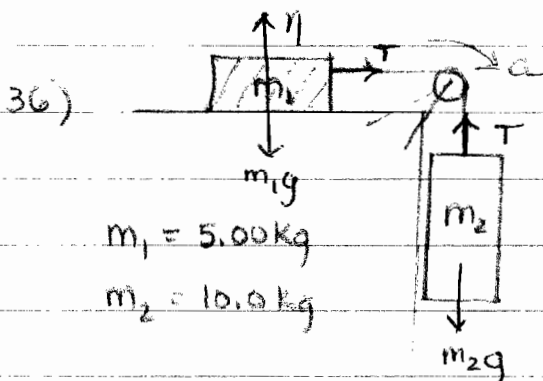 η
T
a
36)
m₁
T
m₁g
m₂
m₁ = 5.00kg
m₂ = 10.0kg
m₂g